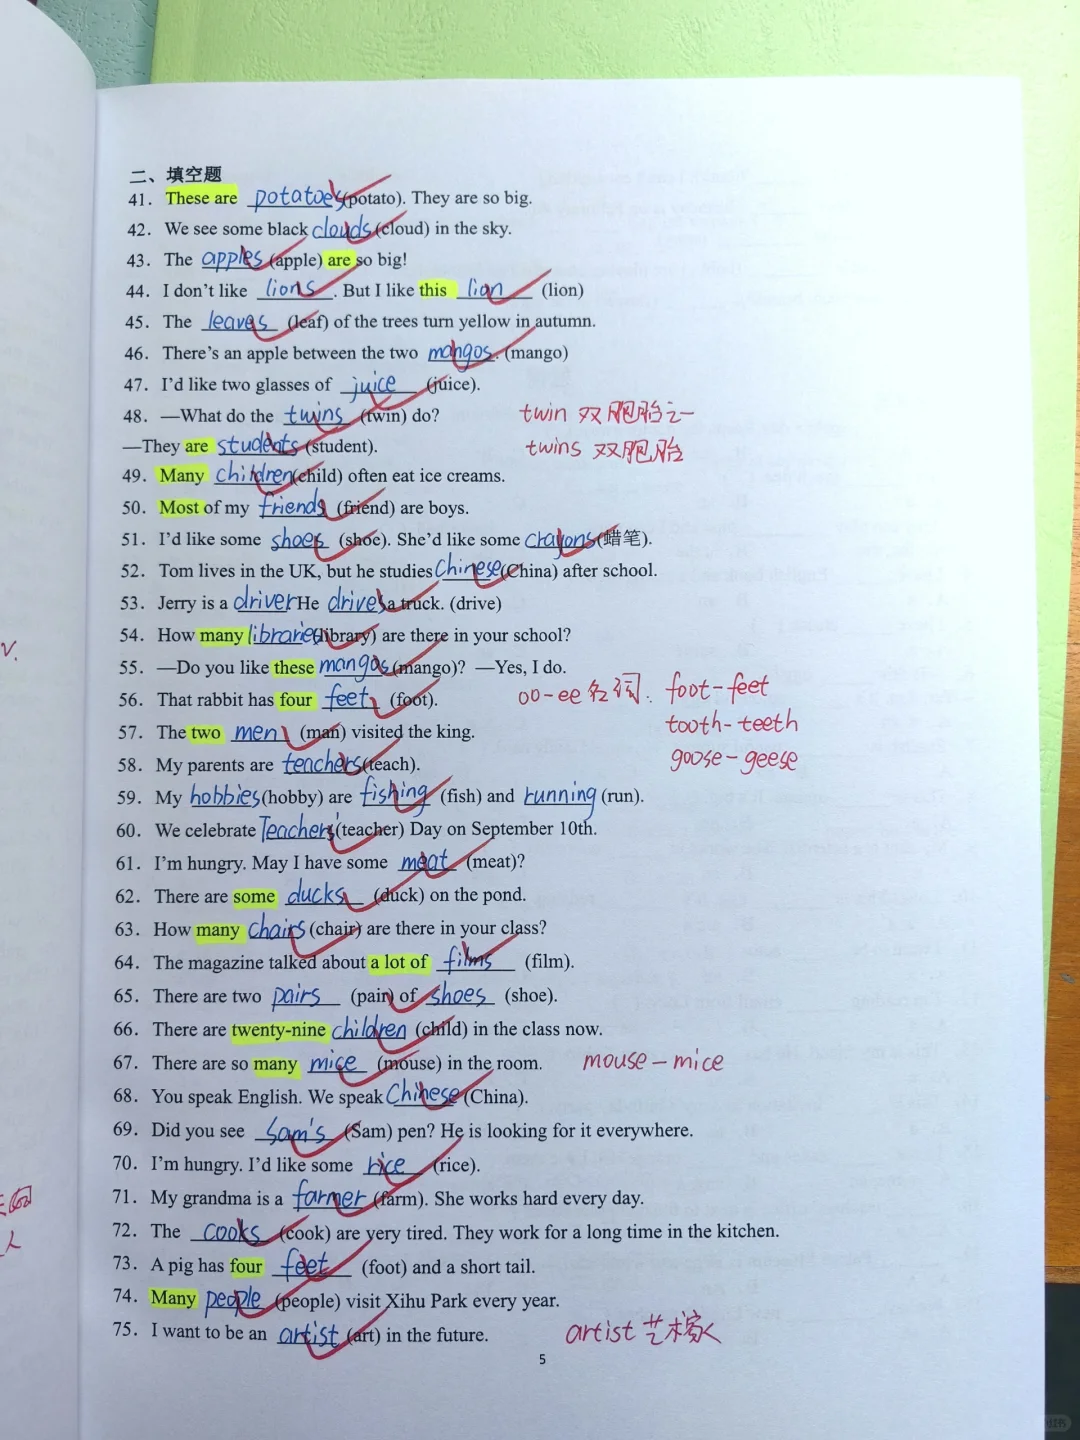 二、填空题
41. These are potatoes(potato). They are so big.
42. We see some black clouds(cloud) in the sky.
43. The apples (apple) are so big!
44. I don't like lions. But I like this lion (lion)
45. The leaves (leaf) of the trees turn yellow in autumn.
46. There's an apple between the two mangos. (mango)
47. I'd like two glasses of juice (juice).
48. —What do the twins (twin) do? twin 双胞胎之一
—They are students (student). twins 双胞胎
49. Many children(child) often eat ice creams.
50. Most of my friends (friend) are boys.
51. I'd like some shoes (shoe). She'd like some crayons(蜡笔).
52. Tom lives in the UK, but he studies Chinese(China) after school.
53. Jerry is a driver He drives a truck. (drive)
54. How many libraries(library) are there in your school?
55. —Do you like these mangos(mango)? —Yes, I do.
56. That rabbit has four feet (foot). oo-ee名词. foot-feet
57. The two men (man) visited the king. tooth-teeth
58. My parents are teachers(teach). goose-geese
59. My hobbies(hobby) are fishing (fish) and running (run).
60. We celebrate Teachers'(teacher) Day on September 10th.
61. I'm hungry. May I have some meat (meat)?
62. There are some ducks (duck) on the pond.
63. How many chairs (chair) are there in your class?
64. The magazine talked about a lot of films (film).
65. There are two pairs (pair) of shoes (shoe).
66. There are twenty-nine children (child) in the class now.
67. There are so many mice (mouse) in the room. mouse-mice
68. You speak English. We speak Chinese (China).
69. Did you see Sam's (Sam) pen? He is looking for it everywhere.
70. I'm hungry. I'd like some rice (rice).
71. My grandma is a farmer (farm). She works hard every day.
72. The cooks (cook) are very tired. They work for a long time in the kitchen.
73. A pig has four feet (foot) and a short tail.
74. Many people (people) visit Xihu Park every year.
75. I want to be an artist (art) in the future. artist 艺术家
5